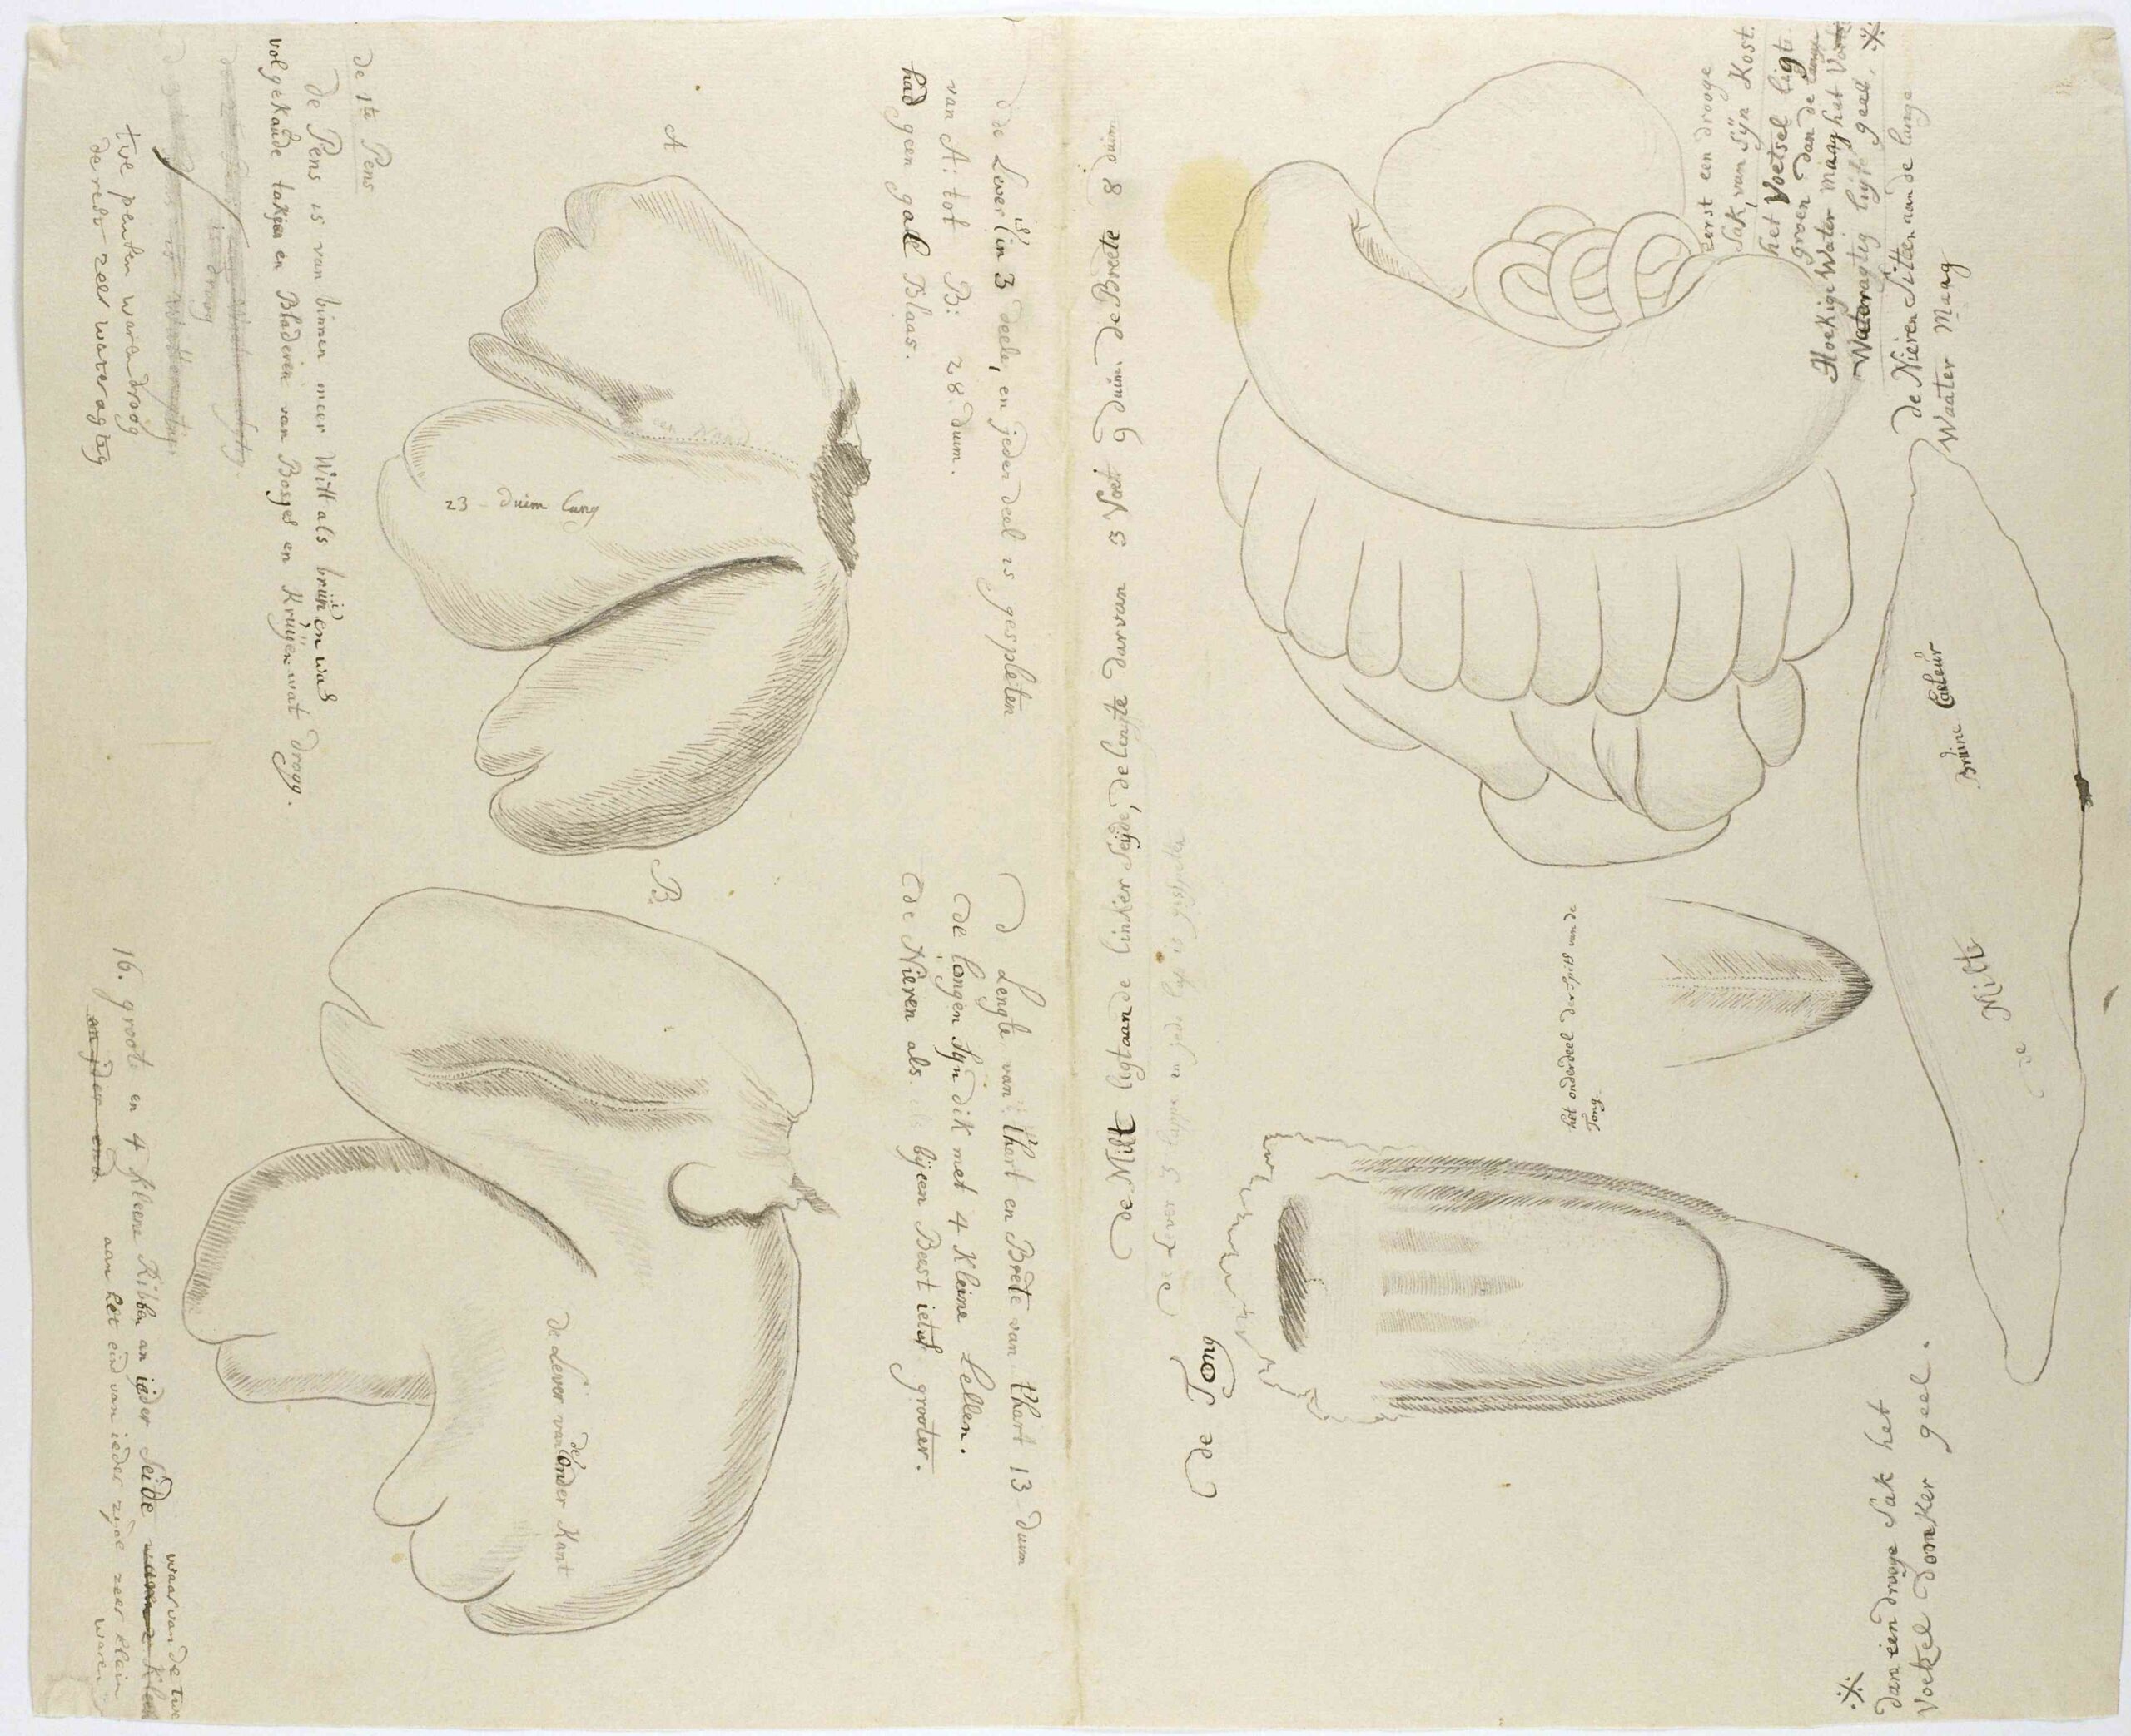 de 1ste Pens
de Pens is van binnen meer Wit als bruijn en was
volgekaude takjes en Bladeren van Bosjes en Kruijen wat droog.
is droog
twe pensen waren droog
de rest zeer wateragtig
A
een Naad
23 duim lang
B
de Lever is in 3 deele, en jeder deel is gespleten
van A: tot B: 28. duim.
had geen gal Blaas.
D Lengte van thert en Brete van thart 13 duim
de longen Syn dik met 4 kleine Lellen.
de Nieren als bij een Beest iets grooter.
de Lever van de onder Kant
16. groote en 4 kleene Ribben an ieder Seide
waar van de twe
aan het eind van ieder zijde zeer klein
waren
an jder eind
de Milt legt aan de linker Seijde, de lengte darvan 3 Voet 9 duim de Breete 8 duim
de Lever 3 lappe en jede lap is gespleten
eerst een drooge
Sak, van Syn Kost.
het Voetsel ligt
groen dan de lange
Hoekige Water maag het
Wateragtig ligte geel. ※
de Nieren Sitten aan de lange
Waater Maag
Bruine Couleur
de Milt
het onderdeel der Spits van de
Tong.
de Tong
※
dan een drooge Sak het
Voetsel donker geel.